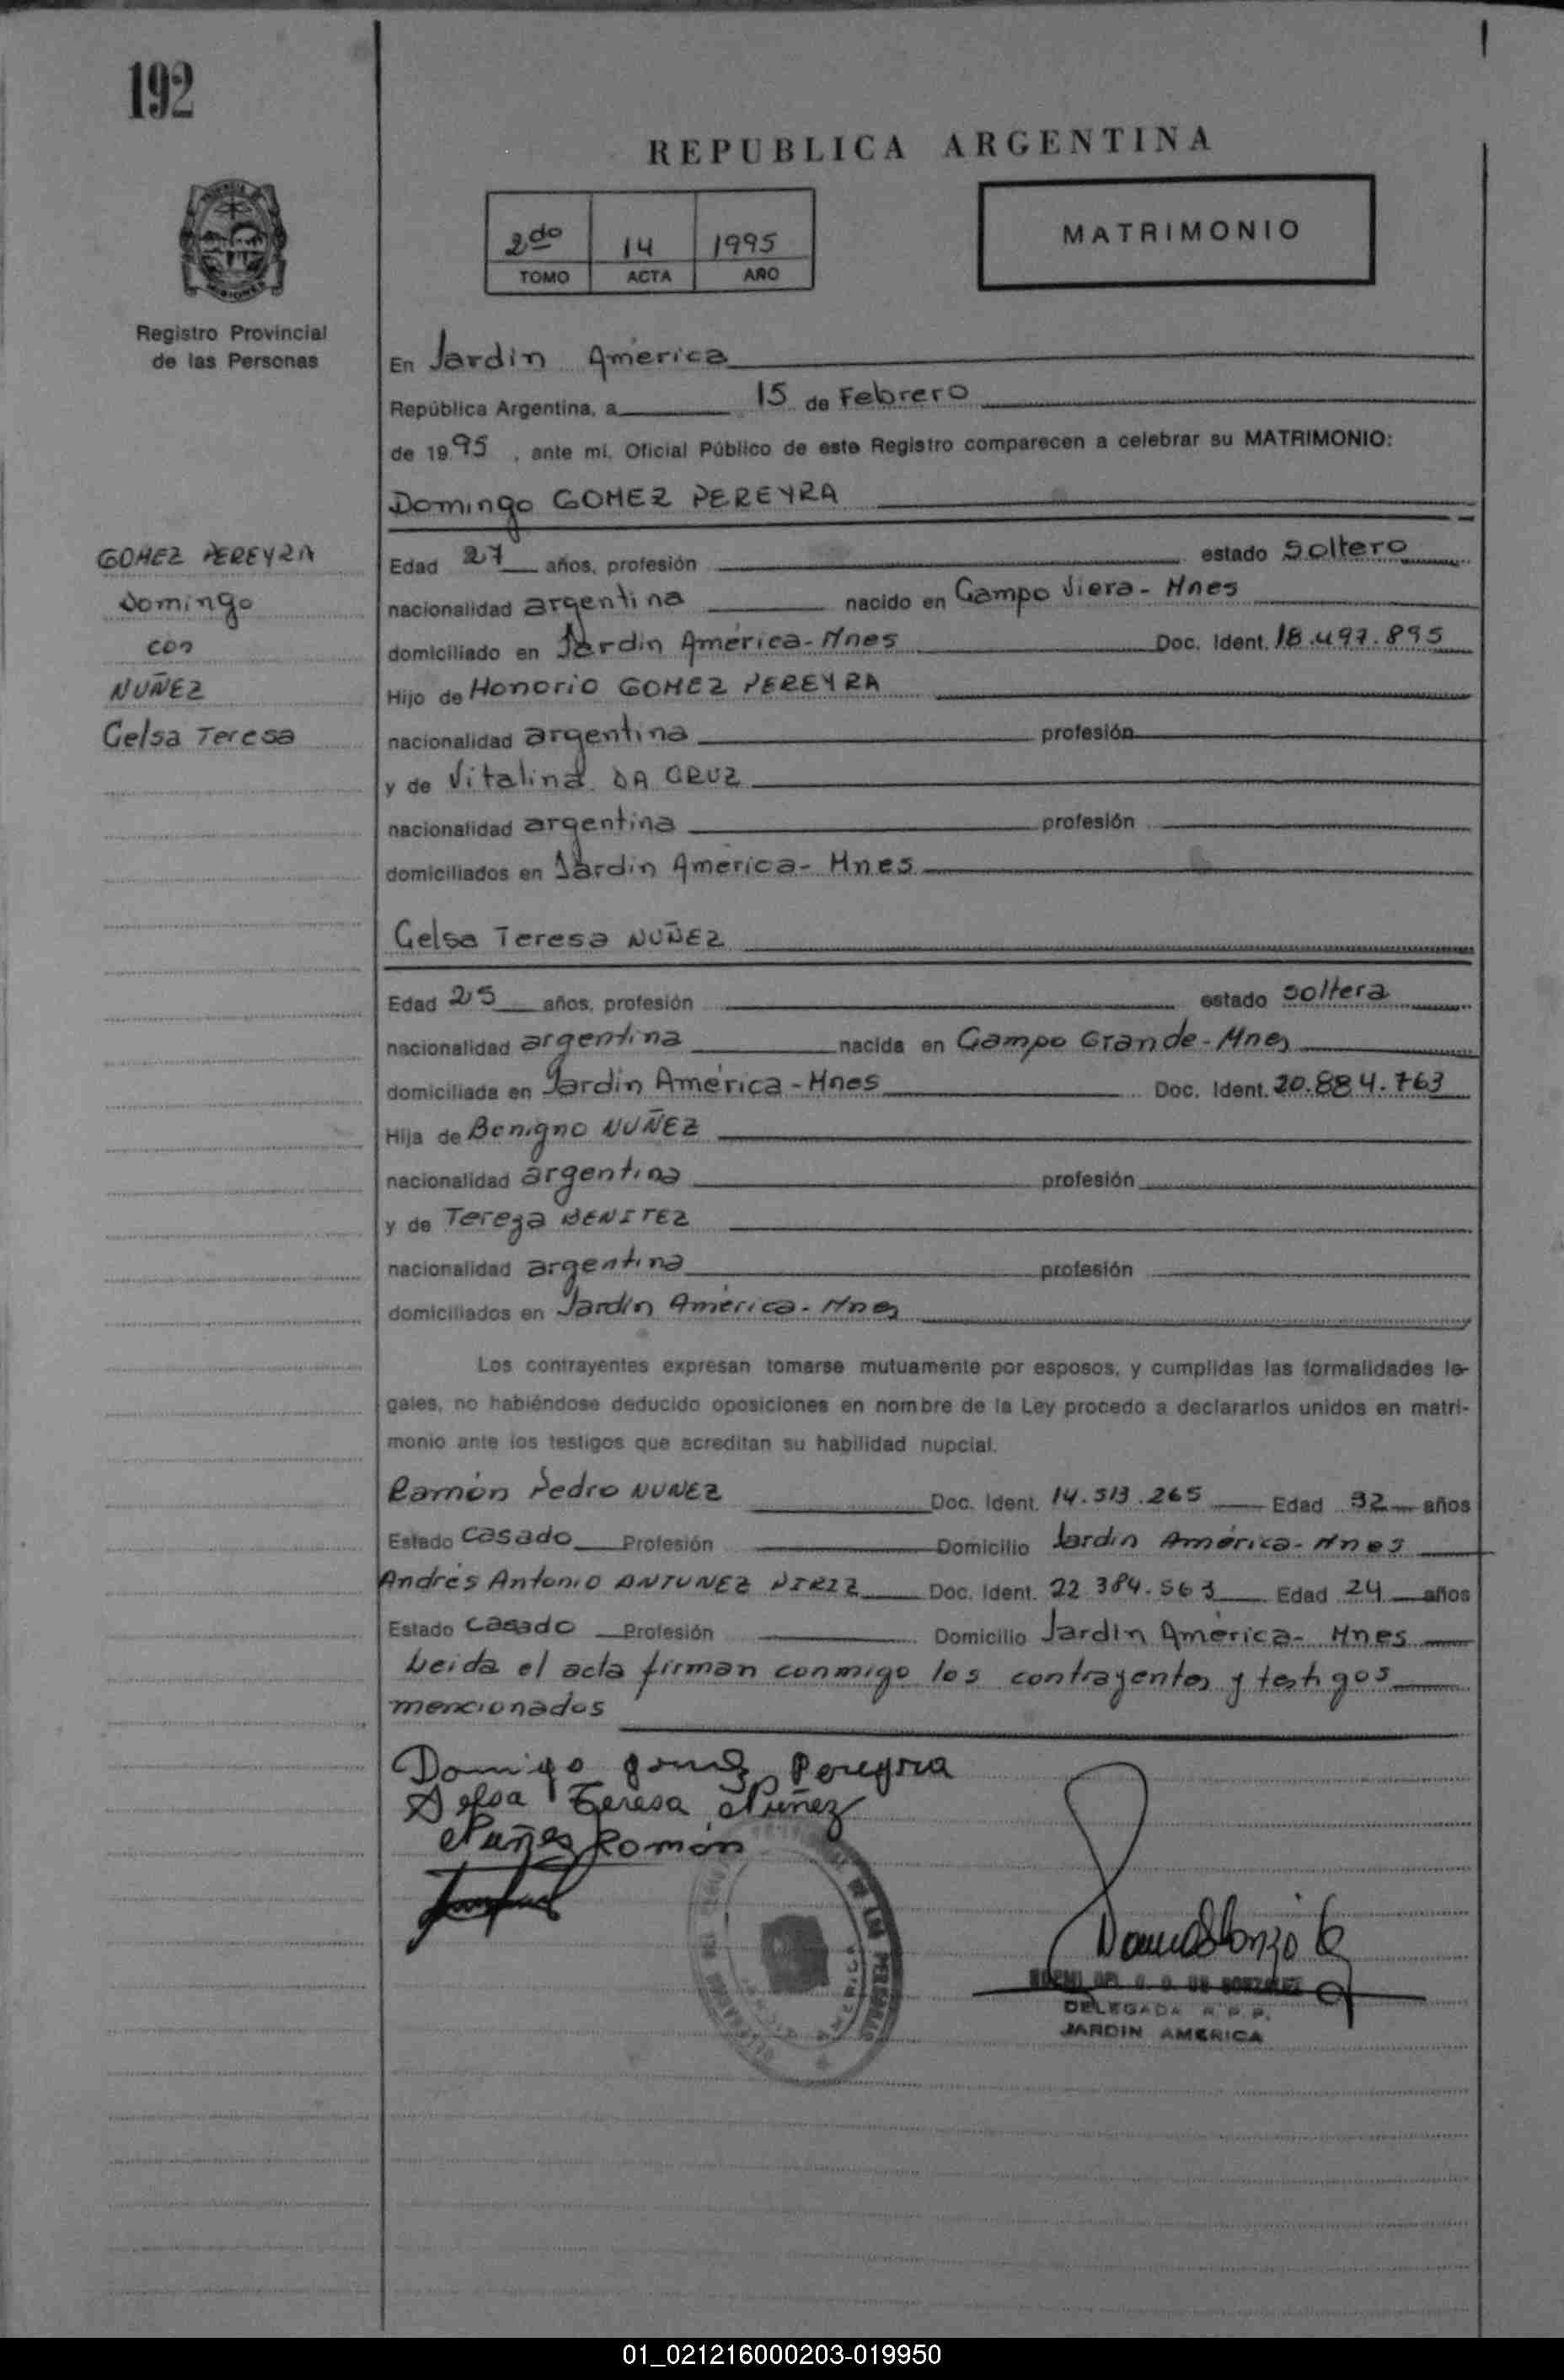 192
REPUBLICA ARGENTINA
2do 14 1995
TOMO ACTA AÑO
MATRIMONIO
Registro Provincial
de las Personas
En Jardin América
República Argentina, a 15 de Febrero
de 1995, ante mí, Oficial Público de este Registro comparecen a celebrar su MATRIMONIO:
Domingo GOMEZ PEREYRA
GOMEZ PEREYRA
Domingo
con
NUÑEZ
Celsa Teresa
Edad 27 años, profesión estado Soltero
nacionalidad argentina nacido en Campo Viera - Mnes
domiciliado en Jardin América - Mnes Doc. Ident. 18.497.895
Hijo de Honorio GOMEZ PEREYRA
nacionalidad argentina profesión
y de Vitalina DA CRUZ
nacionalidad argentina profesión
domiciliados en Jardin América - Mnes
Celsa Teresa NUÑEZ
Edad 25 años, profesión estado soltera
nacionalidad argentina nacida en Campo Grande - Mnes
domiciliada en Jardin América - Mnes Doc. Ident. 20.884.763
Hija de Benigno NUÑEZ
nacionalidad argentina profesión
y de Tereza BENITEZ
nacionalidad argentina profesión
domiciliados en Jardin América - Mnes
Los contrayentes expresan tomarse mutuamente por esposos, y cumplidas las formalidades le-
gales, no habiéndose deducido oposiciones en nombre de la Ley procedo a declararlos unidos en matri-
monio ante los testigos que acreditan su habilidad nupcial.
Ramón Pedro NUNEZ Doc. Ident. 14.513.265 Edad 32 años
Estado Casado Profesión Domicilio Jardin América - Mnes
Andrés Antonio ANTUNEZ Doc. Ident. 22 384.563 Edad 24 años
Estado Casado Profesión Domicilio Jardin América - Mnes
Leida el acta firman conmigo los contrayentes y testigos
mencionados
Domigo gomez Pereyra
Selsa Teresa Nuñez
Nuñez Román
DELEGADA R.P.P.
JARDIN AMERICA
01_021216000203-019950